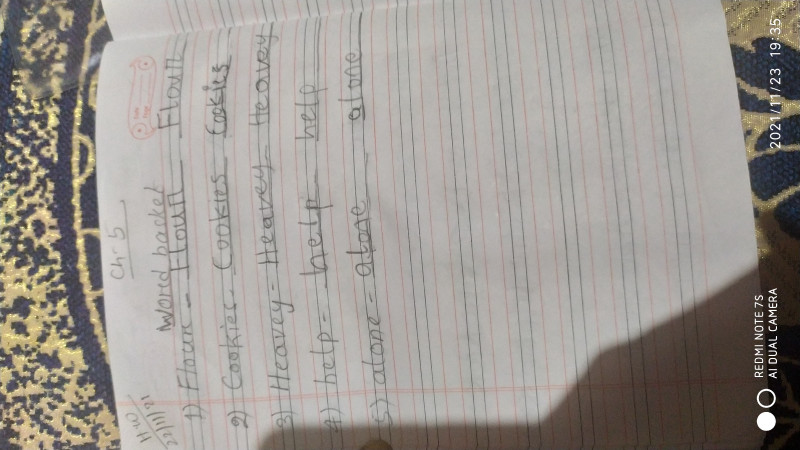 Ch-5
H.W
22/11/21
Word basket
1) Flour - Flour Flour
2) Cookies - Cookies Cookies
3) Heavey - Heavey Heavey
4) help - help help
5) alone - alone alone
REDMI NOTE 7S
AI DUAL CAMERA
2021/11/23 19:35